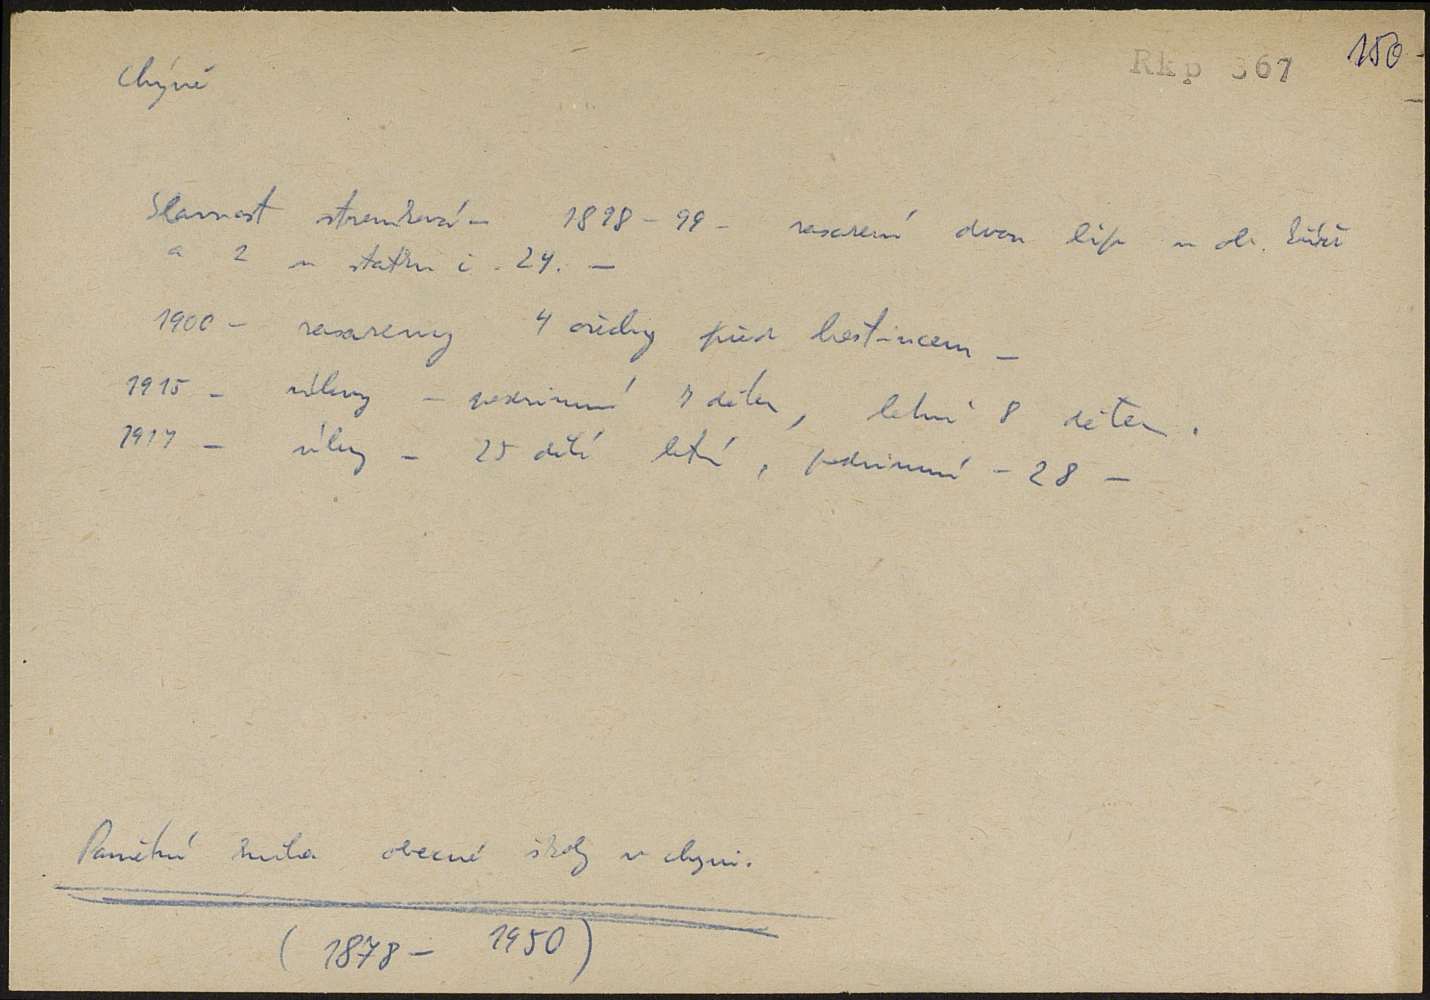 Chýně
Rkp 367
150
Slavnost stromková - 1898 - 99 - zasazení dvou lip u ob. kříže
a 2 u statku č. 24. -
1900 - zasazeny 4 ořechy před hostincem -
1915 - úlevy - podzimní 7 dětem, letní 8 dětem.
1917 - úlevy - 25 dětí letní, podzimní - 28 -
Pamětní kniha obecné školy v Chyni.
(1878 - 1950)